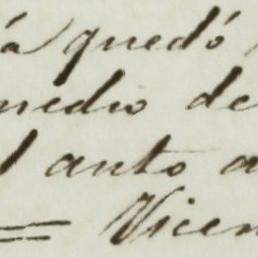 á quedó
medio de
l auto a
= Vicen